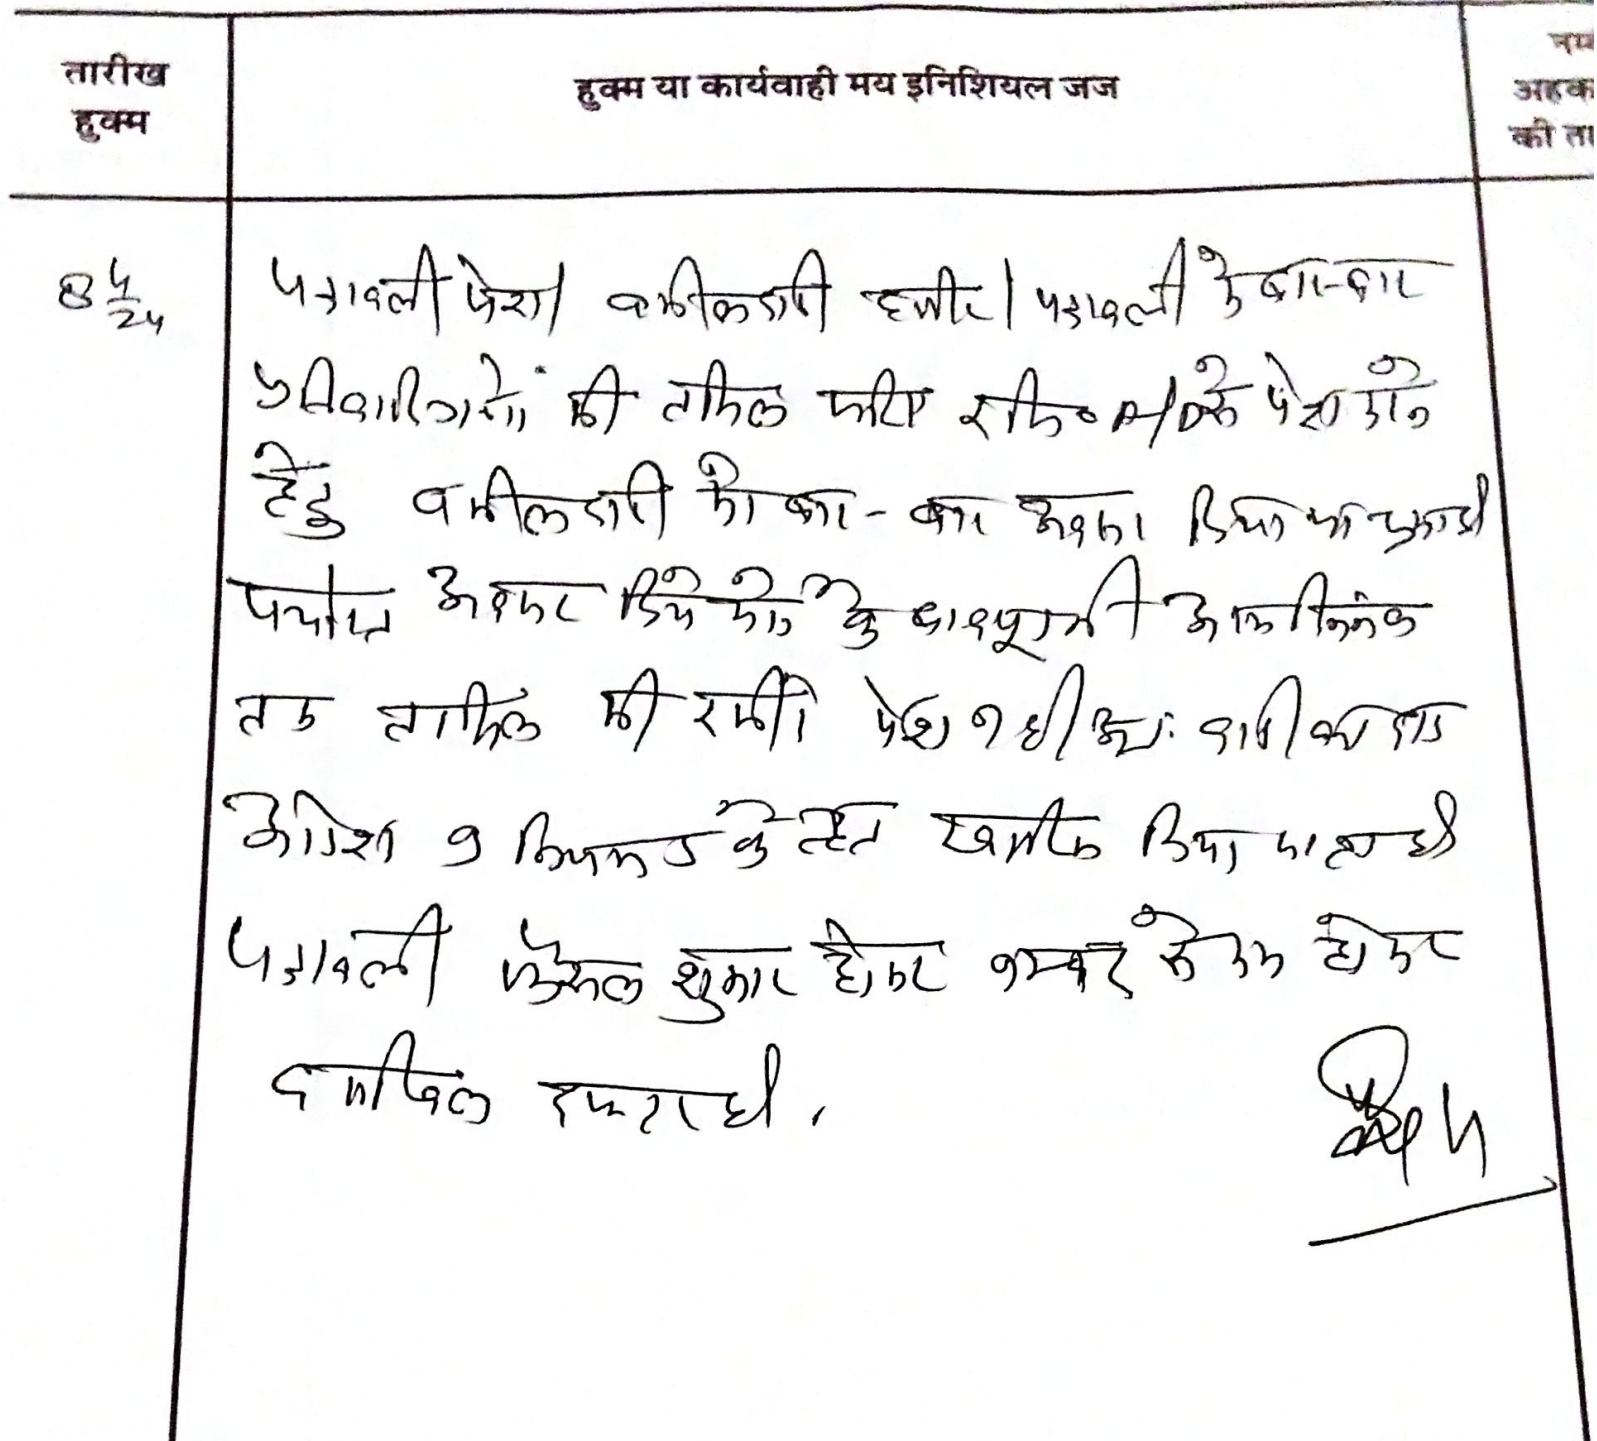 तारीख
हुक्म
हुक्म या कार्यवाही मय इनिशियल जज
अहक
की ता
8 4/24
पत्रावली पेश। वकील वादी हाजीर। पत्रावली में बार-बार
प्रतिवादिगणों की तामिल जरिए रजि० A/D के पेश होने
हेतु वकील वादी को बार-बार अवसर दिया जा चुका है
पर्याप्त अवसर दिये जाने के बावजूद भी आज दिनांक
तक तामिल की रसीद पेश नहीं अतः वादी का वाद
आदेश 9 नियम 5 के तहत खारीज किया जाता है।
पत्रावली फैसल शुमार होकर नम्बर से कम होकर
दाखिल दफ्तर हो.